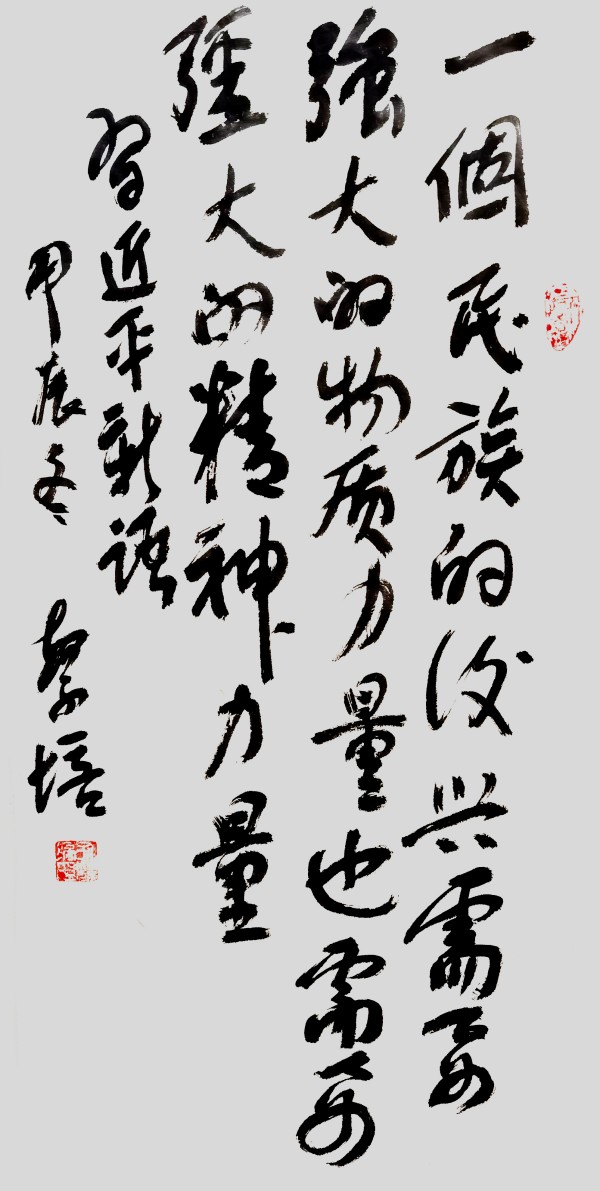 一個民族的復兴需要
強大的物质力量也需要
彊大的精神力量
習近平新语
甲辰冬 培